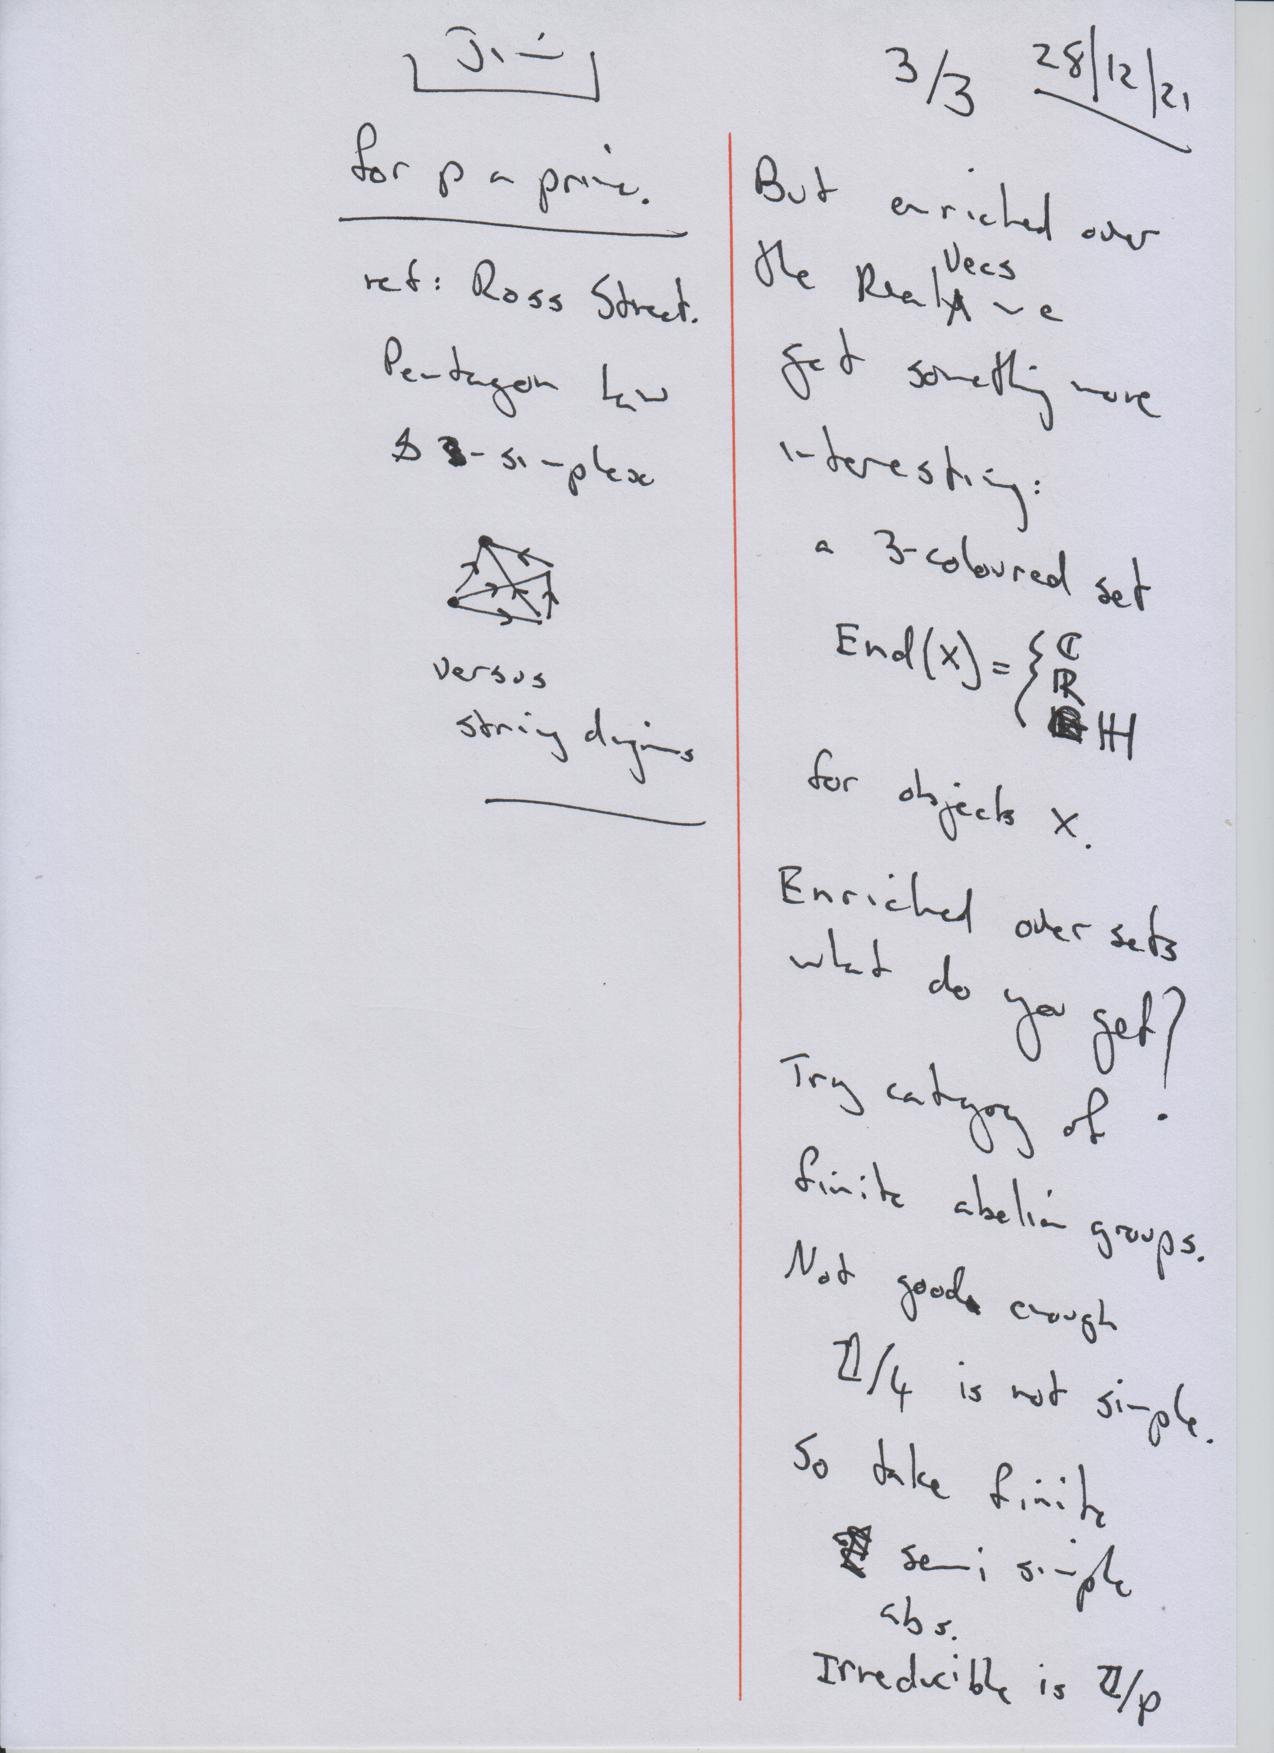 Jim
3/3 28/12/21
for p a prime.
ref: Ross Street.
Pentagon Law
3-simplex
versus
string diagrams
But enriched over
the Real Vecs we
get something more
interesting:
a 3-coloured set
End(X) = { ℂ
ℝ
ℍ
for objects X.
Enriched over sets
what do you get?
Try category of
finite abelian groups.
Not good enough
ℤ/4 is not simple.
So take finite
semi simple
abs.
Irreducible is ℤ/p